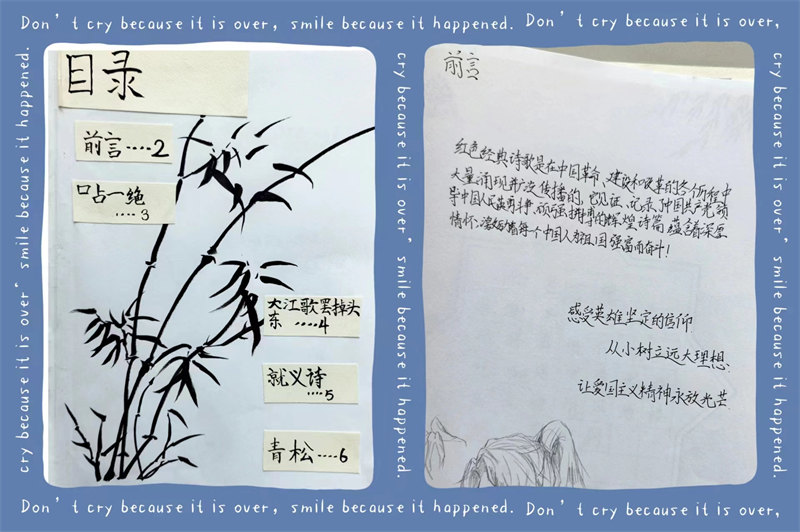 Don't cry because it is over, smile because it happened. Don't cry because it is over,
cry because it is over" smile because it happened.
目录
前言····2
口占一绝
····3
大江歌罢掉头
东 ····4
就义诗
····5
青松····6
cry because it is over" smile because it happened.
前言
红色经典诗歌是在中国革命、建设和改革的各个历程中
大量涌现并广泛传播的,它见证、记录了中国共产党领
导中国人民英勇斗争、顽强拼搏的辉煌诗篇,蕴含着深厚
情怀,激励着每一个中国人为祖国强富而奋斗!
感受英雄坚定的信仰
从小树立远大理想
让爱国主义精神永放光芒
cry because it is over" smile because it happened.
Don't cry because it is over, smile because it happened. Don't cry because it is over,